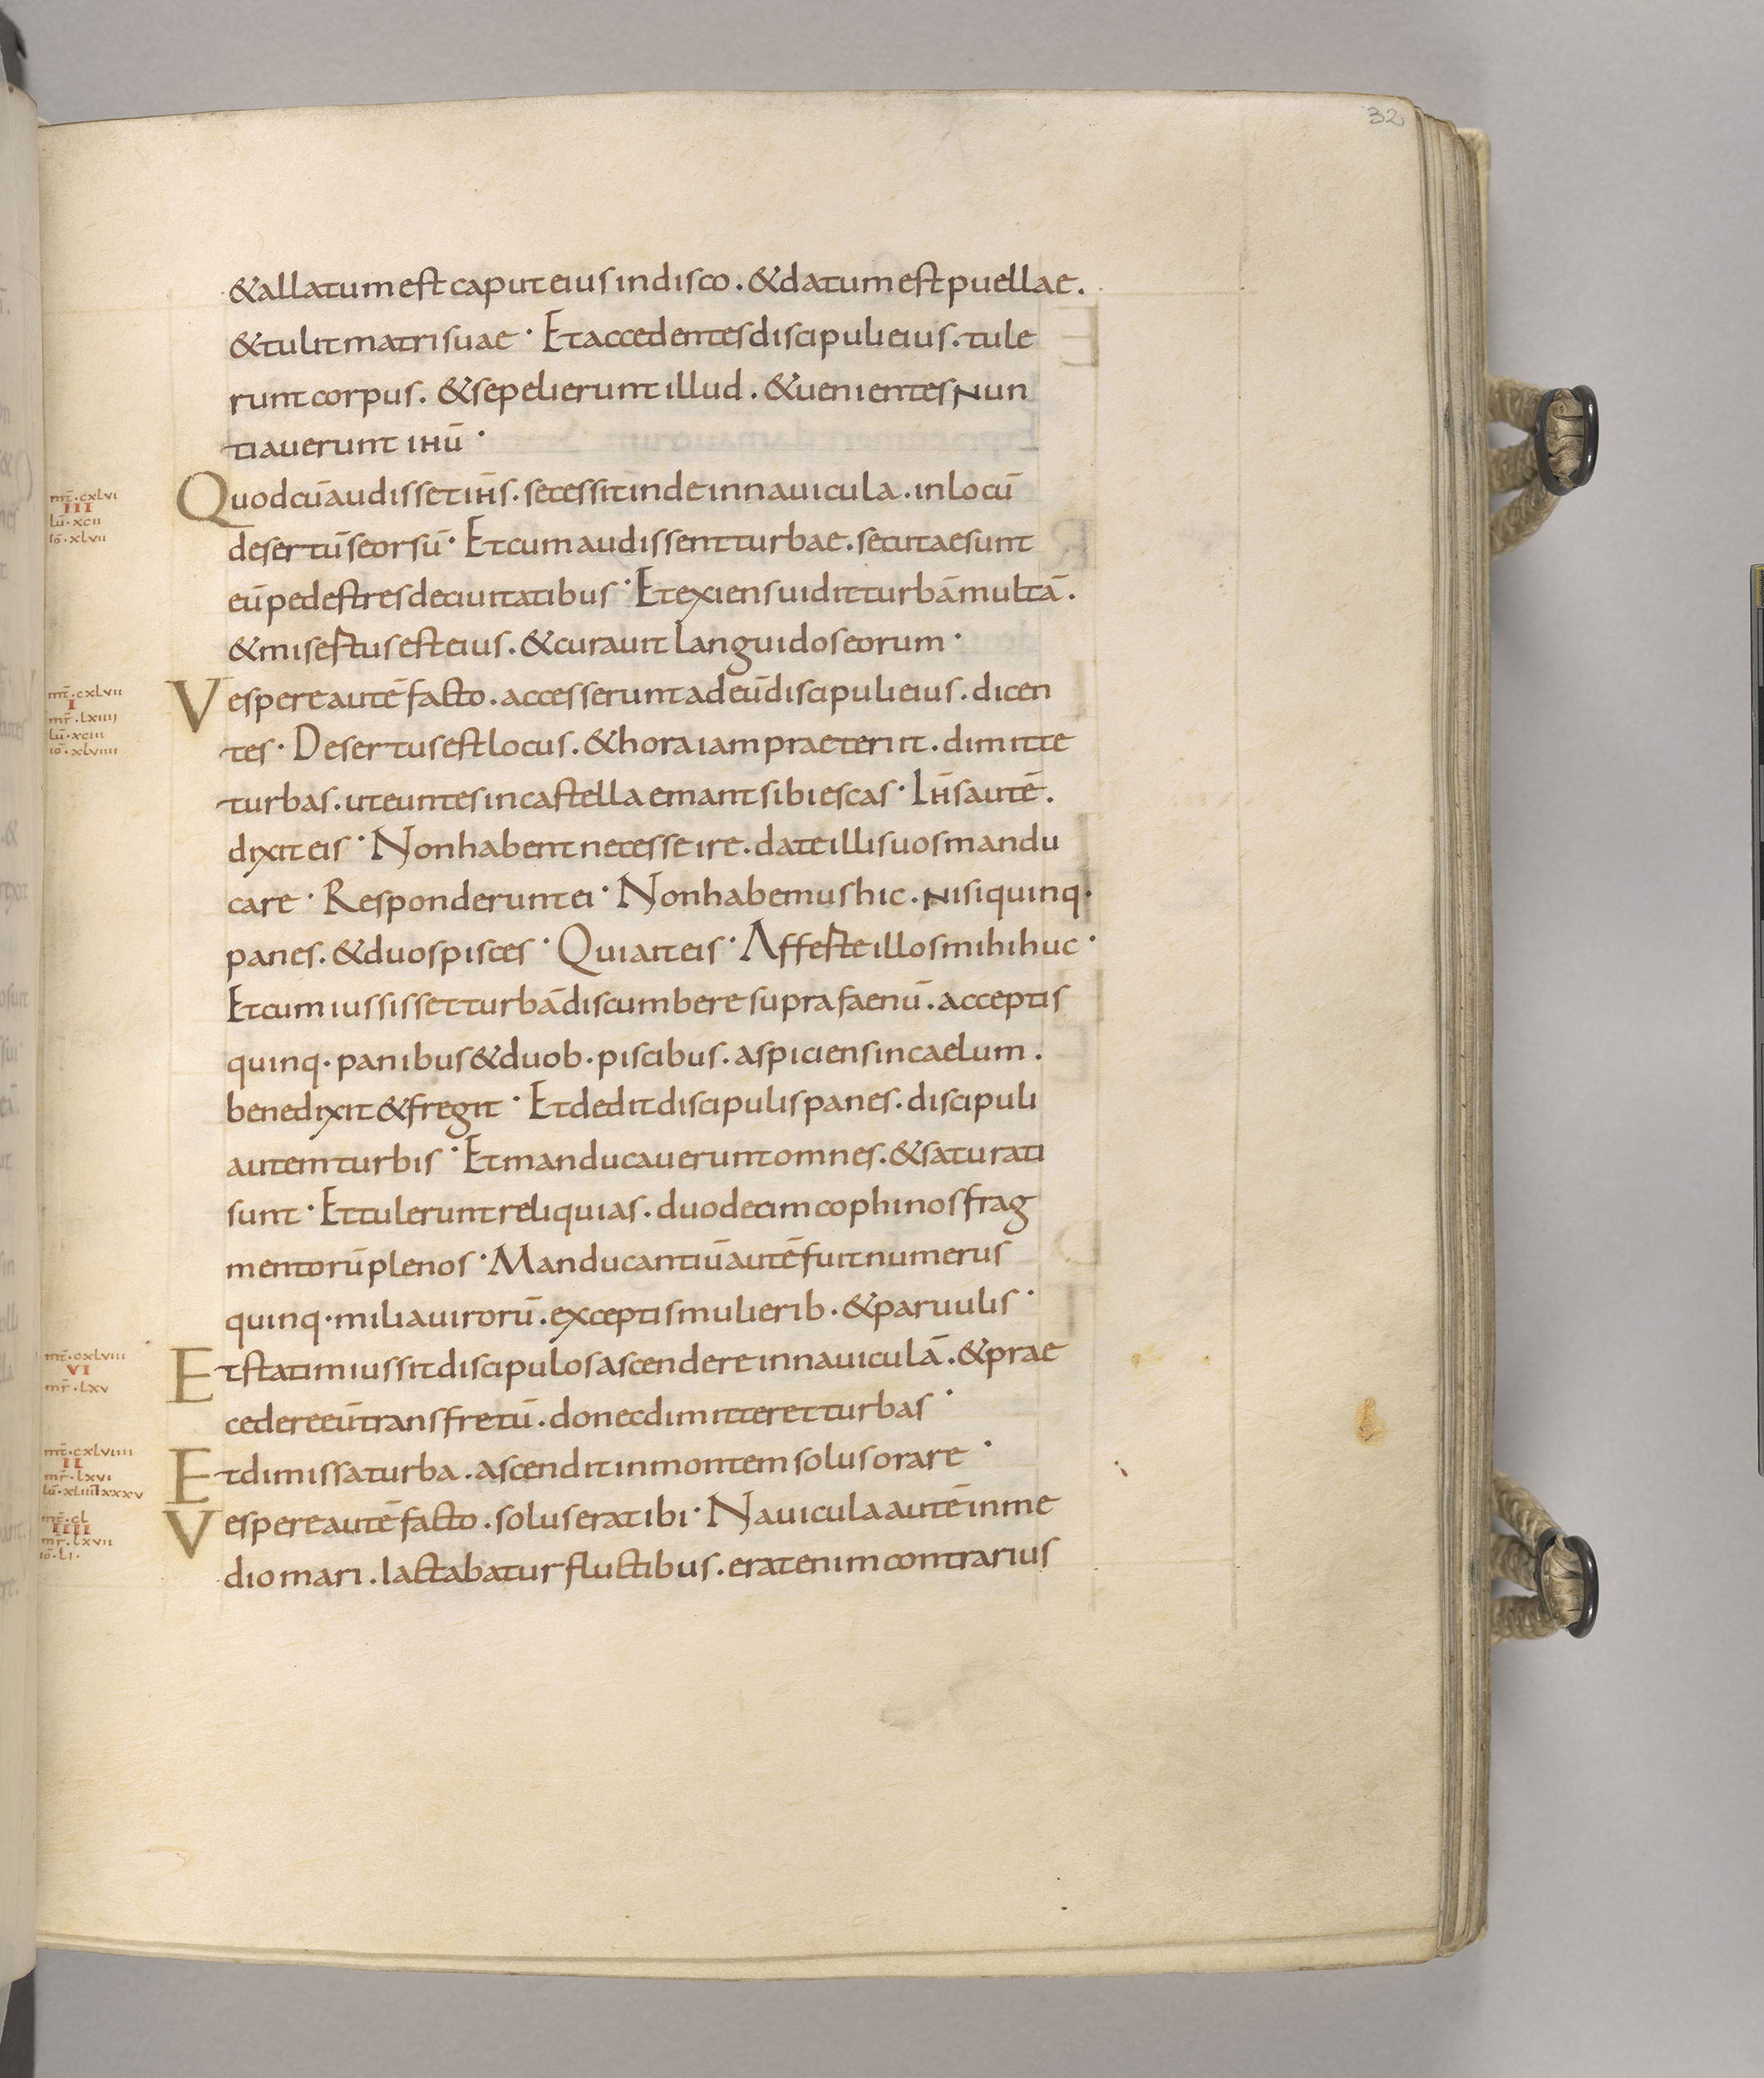 32
&allatum est caput eius in disco . & datum est puellae .
& tulit matri suae · Et accedentes discipuli eius . tule
runt corpus . & sepelierunt illud . & uenientes nun
tiauerunt ihū ·
mt̄ · cxlvi
III
lū · xcii
iō · xlvii
Quod cū audisset ihs̄ . secessit inde in nauicula . in locū
desertū seorsū · Et cum audissent turbae . secutae sunt
eū pedestres de ciuitatibus · Et exiens uidit turbā multā .
& misertus est eius . & curauit languidos eorum ·
mt̄ · cxlvii
I
mr̄ · lxiiii
lū · xciii
iō · xlviiii
Vespere autē facto . accesserunt ad eū discipuli eius . dicen
tes · Desertus est locus . & hora iam praeteriit . dimitte
turbas . ut euntes in castella emant sibi escas · Ihs̄ autē .
dixit eis · Non habent necesse ire . date illis uos mandu
care · Responderunt ei · Non habemus hic . nisi quinq·
panes . & duos pisces · Qui ait eis · Afferte illos mihi huc ·
Et cum iussisset turbā discumbere supra faenū . acceptis
quinq · panibus & duob · piscibus . aspiciens in caelum .
benedixit & fregit · Et dedit discipulis panes . discipuli
autem turbis · Et manducauerunt omnes . & saturati
sunt · Et tulerunt reliquias . duodecim cophinos frag
mentorū plenos · Manducantiū autē fuit numerus
quinq · milia uirorū . exceptis mulierib · & paruulis ·
mt̄ · cxlviii
VI
mr̄ · lxv
Et statim iussit discipulos ascendere in nauiculā . & prae
cedere eū trans fretū . donec dimitteret turbas ·
mt̄ · cxlviiii
II
mr̄ · lxvi
lū · xliii lxxxv
Et dimissa turba . ascendit in montem solus orare ·
mt̄ · cl
IIII
mr̄ · lxvii
iō · li ·
Vespere autē facto . solus erat ibi · Nauicula autē in me
dio mari . iactabatur fluctibus . erat enim contrarius